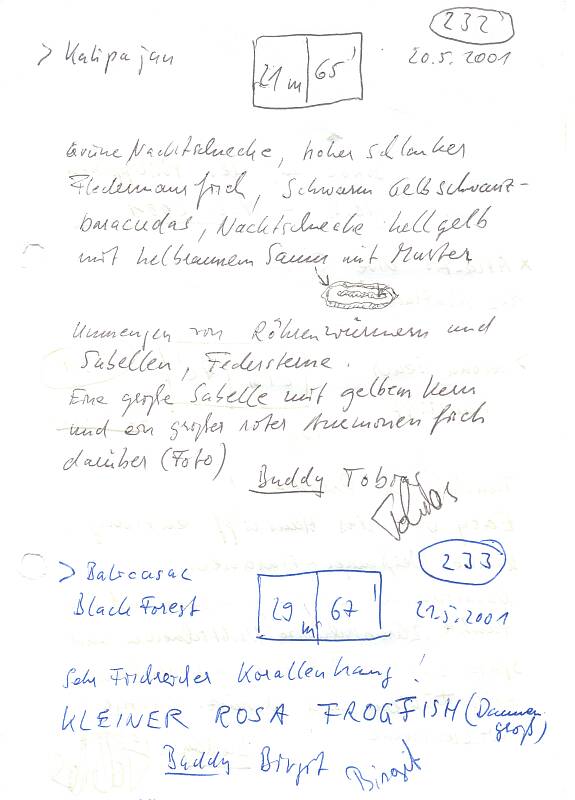 232
> Kalipajan
21 m 65'
20.5.2001
Grüne Nachtschnecke, hoher schlanker
Fledermausfisch, Schwarm Gelbschwanz-
baracudas, Nachtschnecke hellgelb
mit hellbraunem Saum mit Muster
Unmengen von Röhrenwürmern und
Sabellen, Federsterne.
Eine große Sabelle mit gelbem Kern
und ein großer roter Anemonenfisch
darüber (Foto)
Buddy Tobias
Tobias
233
> Balicasac
Black Forest
29 m 67'
21.5.2001
Sehr Korallenhang!
KLEINER ROSA FROGFISH (Daumen
groß)
Buddy Birgit
Birgit